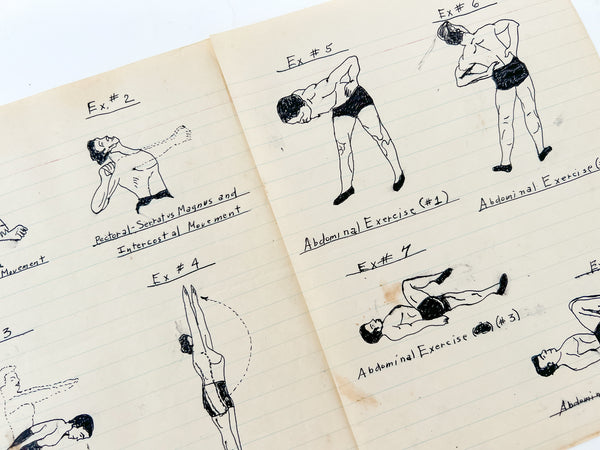 Ex. # 2
Pectoral-Serratus Magnus and
Intercostal Movement
Movement
Ex # 4
3
Ex # 5
Abdominal Exercise (#1)
Ex # 6
Abdominal Exercise (
Ex # 7
Abdominal Exercise (#3)
Ex
Abdomin